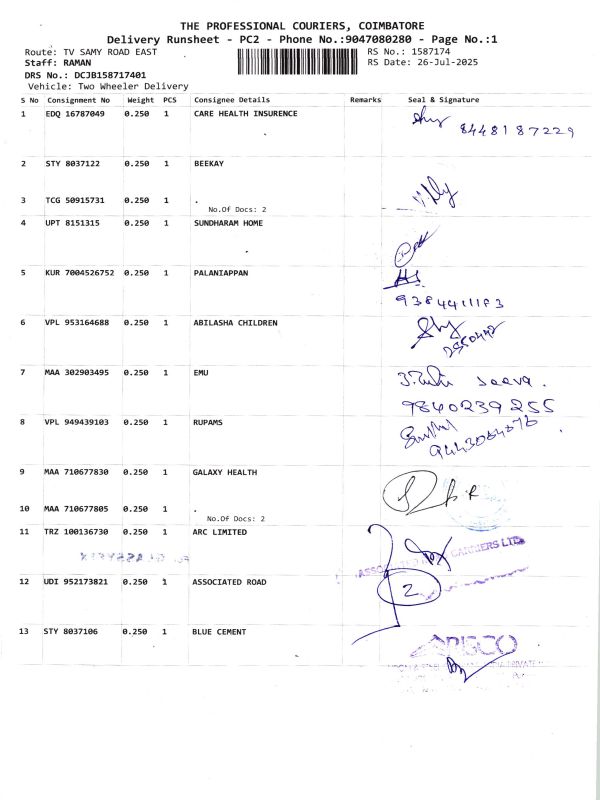 THE PROFESSIONAL COURIERS, COIMBATORE
Delivery Runsheet - PC2 - Phone No.:9047080280 - Page No.:1
Route: TV SAMY ROAD EAST
RS No.: 1587174
Staff: RAMAN
RS Date: 26-Jul-2025
DRS No.: DCJB158717401
Vehicle: Two Wheeler Delivery
S No Consignment No Weight PCS Consignee Details Remarks Seal & Signature
1 EDQ 16787049 0.250 1 CARE HEALTH INSURENCE
8448187229
2 STY 8037122 0.250 1 BEEKAY
3 TCG 50915731 0.250 1 .
No.Of Docs: 2
4 UPT 8151315 0.250 1 SUNDHARAM HOME
5 KUR 7004526752 0.250 1 PALANIAPPAN
9384411183
6 VPL 953164688 0.250 1 ABILASHA CHILDREN
7 MAA 302903495 0.250 1 EMU
9840239255
8 VPL 949439103 0.250 1 RUPAMS
9 MAA 710677830 0.250 1 GALAXY HEALTH
10 MAA 710677805 0.250 1 .
No.Of Docs: 2
11 TRZ 100136730 0.250 1 ARC LIMITED
ASSOCIATED CARRIERS LTD
12 UDI 952173821 0.250 1 ASSOCIATED ROAD
2
13 STY 8037106 0.250 1 BLUE CEMENT